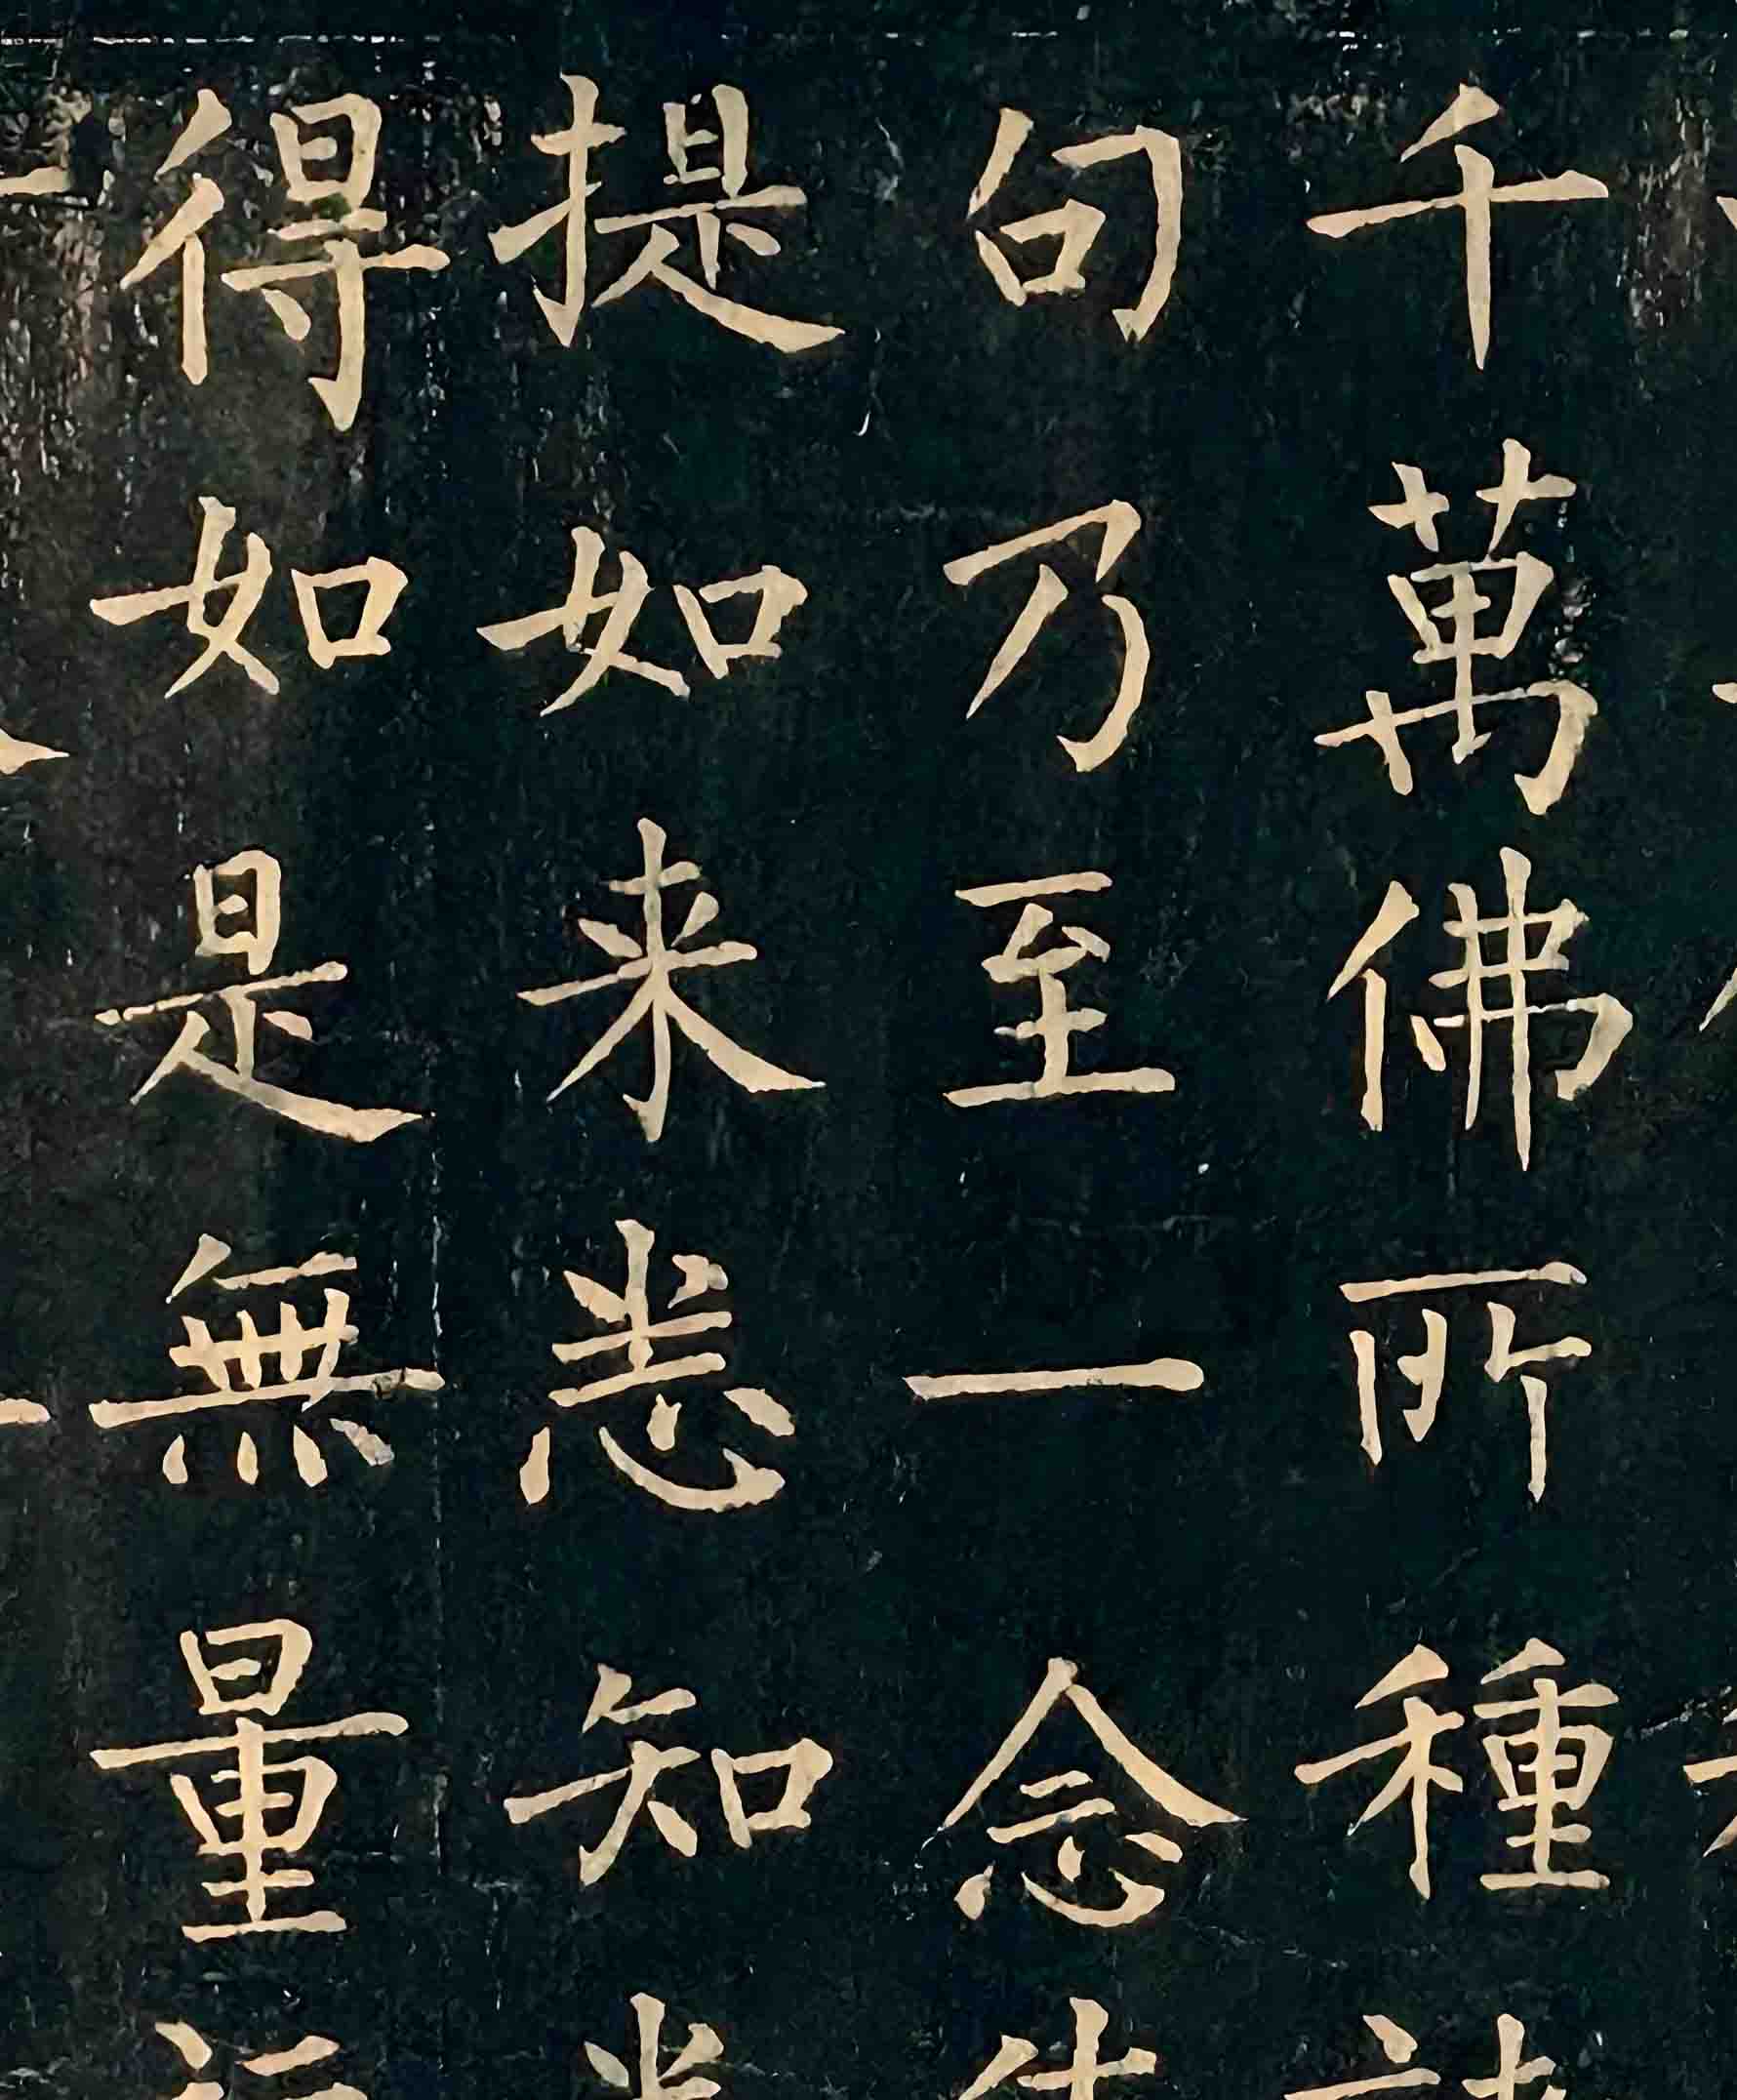 千萬佛所種
句乃至一念
提如来悉知
得如是無量